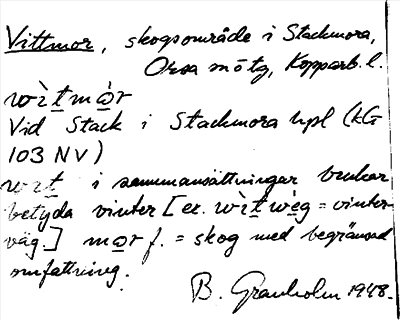 Vittmor, skogsområde i Stackmora,
Orsa sn o tg, Kopparb. l.
wìt̲mo̲r
Vid Stack i Stackmora hpl (kG
103 NV)
wɪt̲ i sammansättningar brukar
betyda vinter [ex. wìt̲wèg = vinter-
väg.] mo̲r f. = skog med begränsad
omfattning.
B. Granholm 1948.